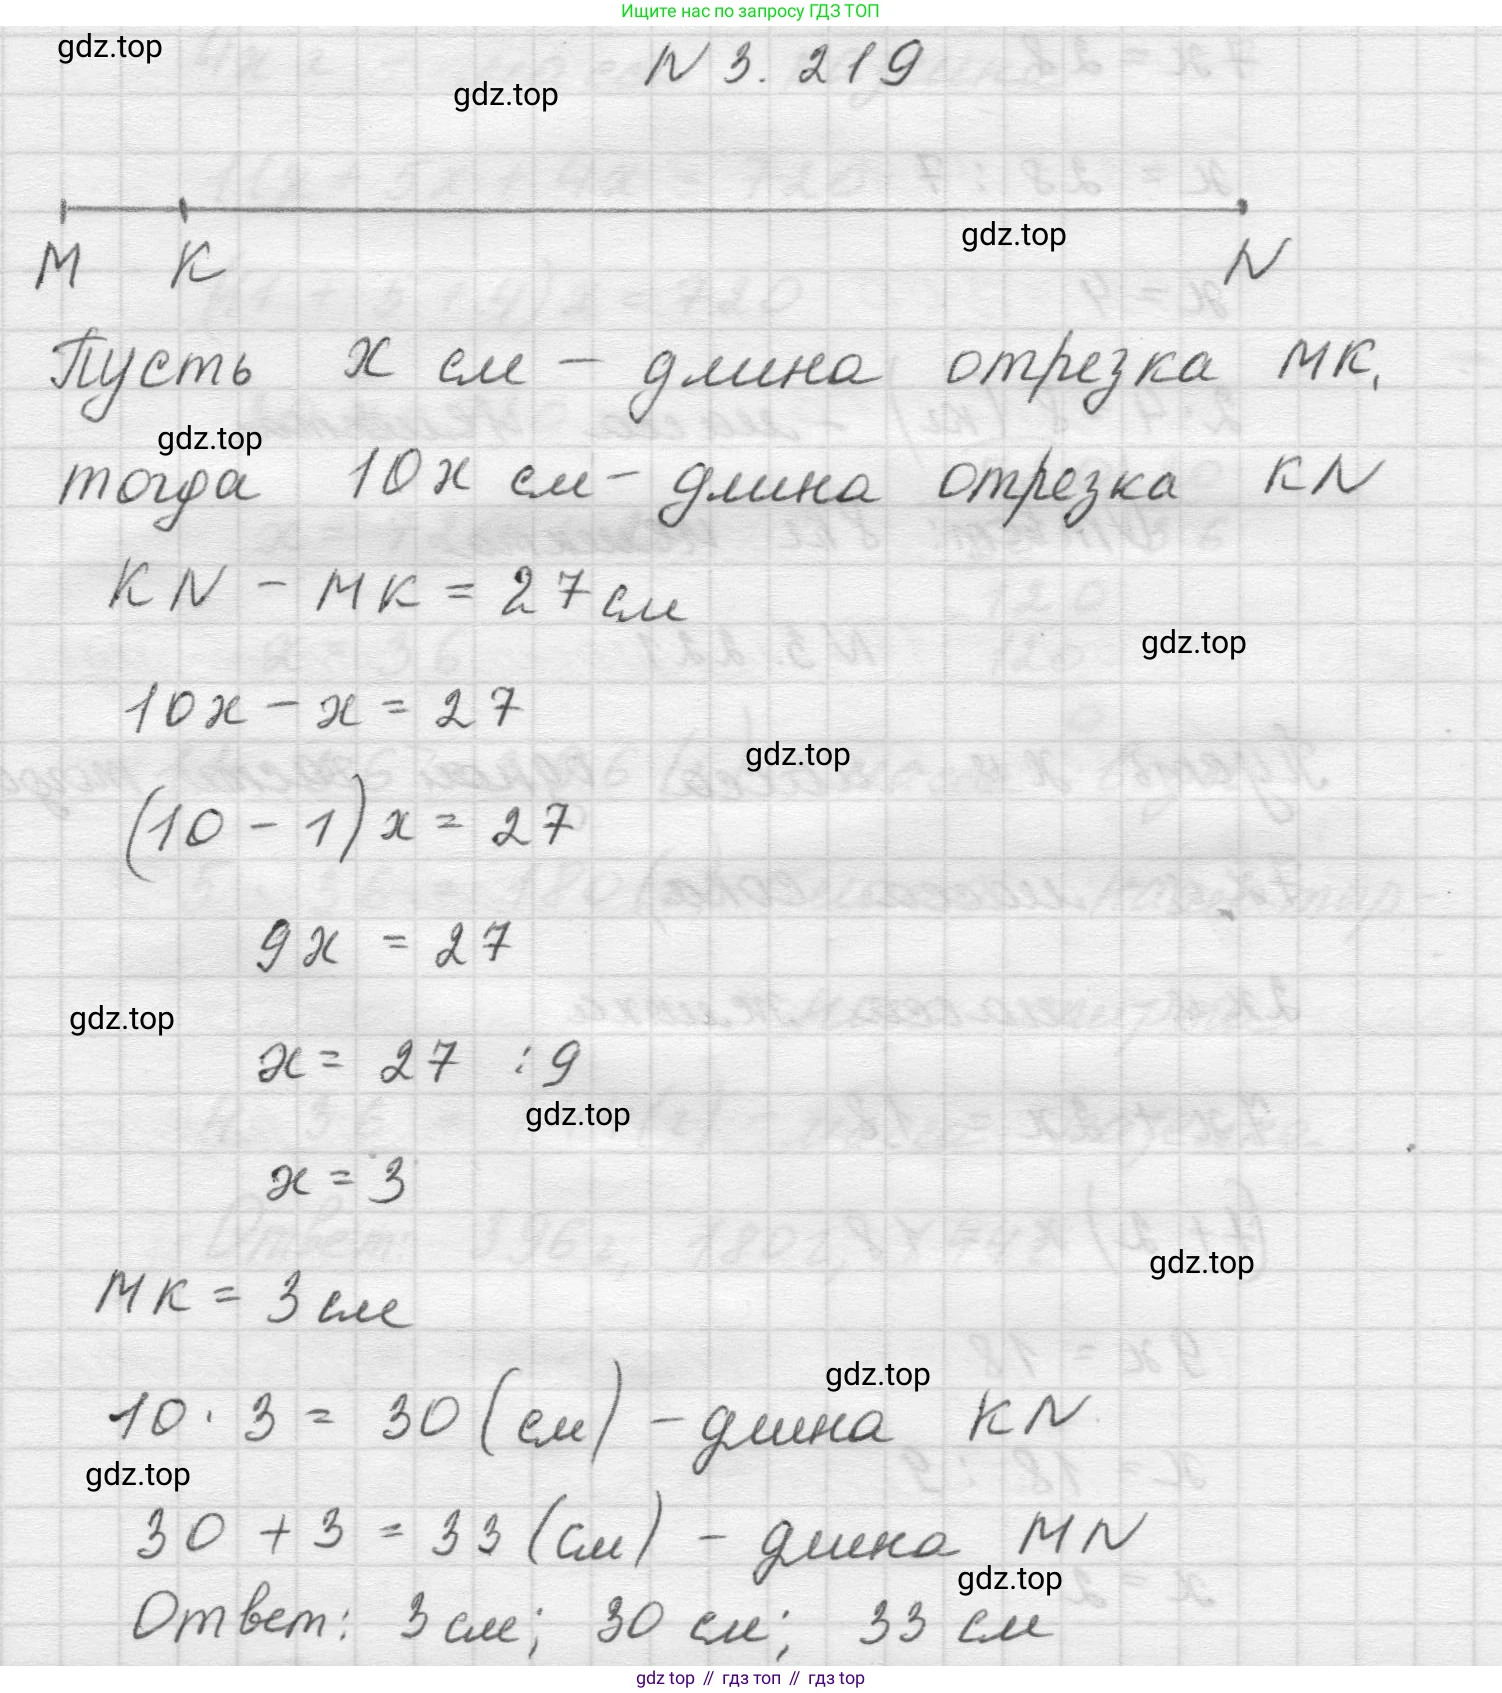 Ищите нас по запросу ГДЗ ТОП
gdz.top
N 3. 219
gdz.top
gdz.top
M K N
Пусть x см – длина отрезка MK,
gdz.top
тогда 10x см – длина отрезка KN
KN – MK = 27 см
gdz.top
10x – x = 27
gdz.top
(10 – 1) x = 27
9x = 27
gdz.top
x = 27 : 9
gdz.top
x = 3
gdz.top
MK = 3 см
gdz.top
10 · 3 = 30 (см) – длина KN
gdz.top
30 + 3 = 33 (см) – длина MN
gdz.top
Ответ: 3 см; 30 см; 33 см
gdz top // гдз топ // гдз top